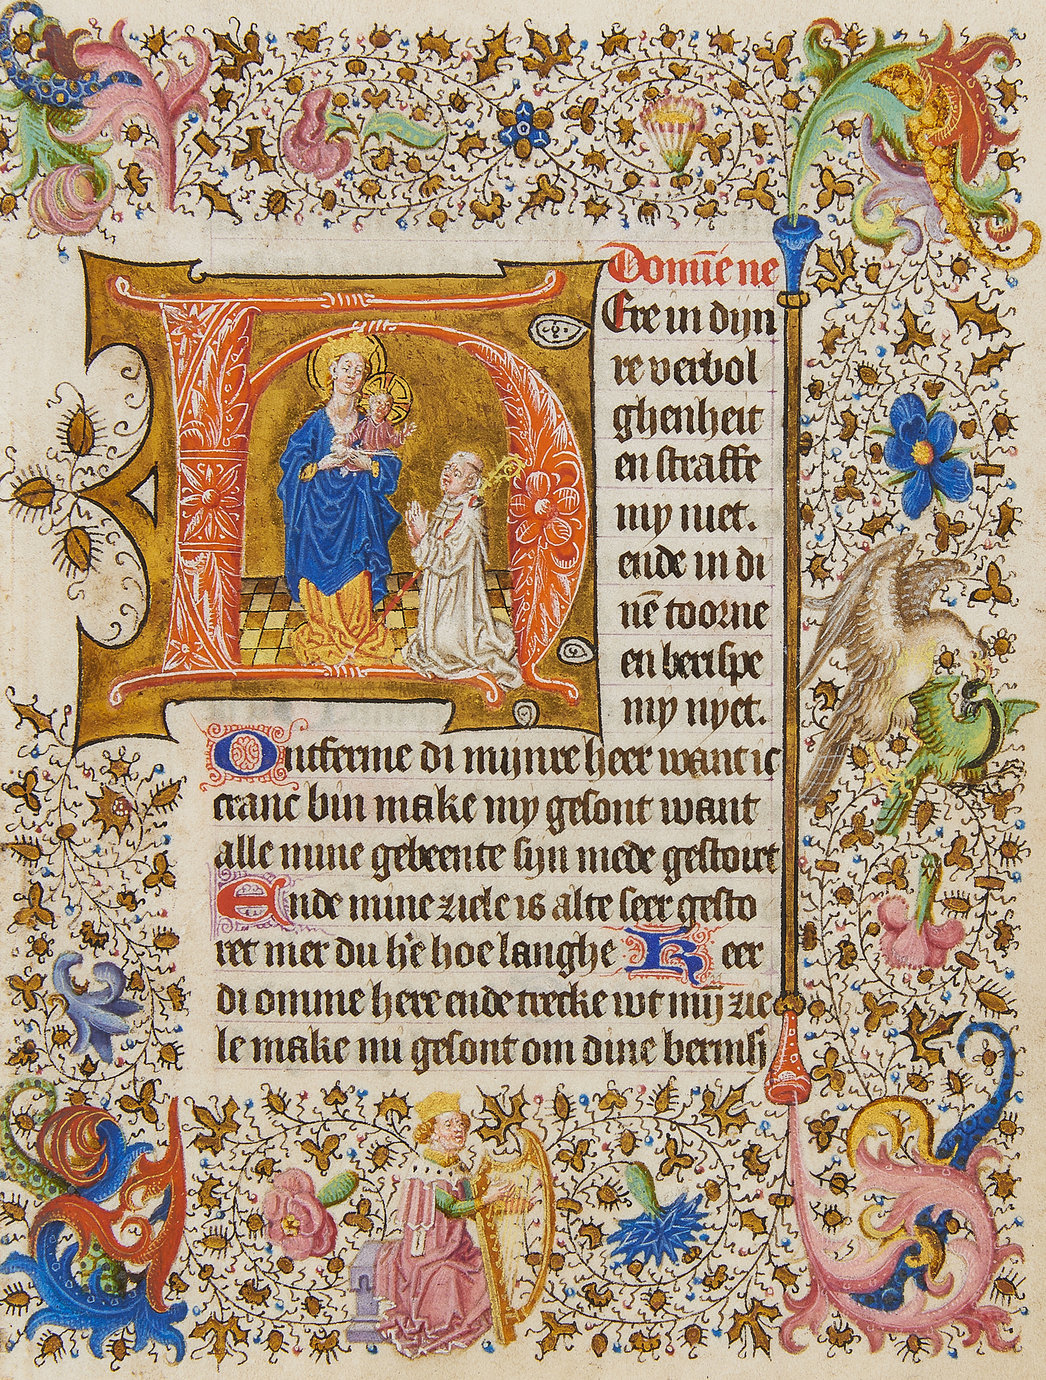 Domīe ne
Ere in dijn
re verbol
ghenheit
en straffe
my niet.
ende in di
nē toorne
en berispe
my nyet.
Ontferme di mijnre heer want ic
cranc bin make my gesont want
alle mine gebeente sijn mede gestoirt
Ende mine ziele is alte seer gesto
ret mer du h̄e hoe langhe Keer
di omme here ende trecke wt mijn zie
le make mi gesont om dine bermh̄